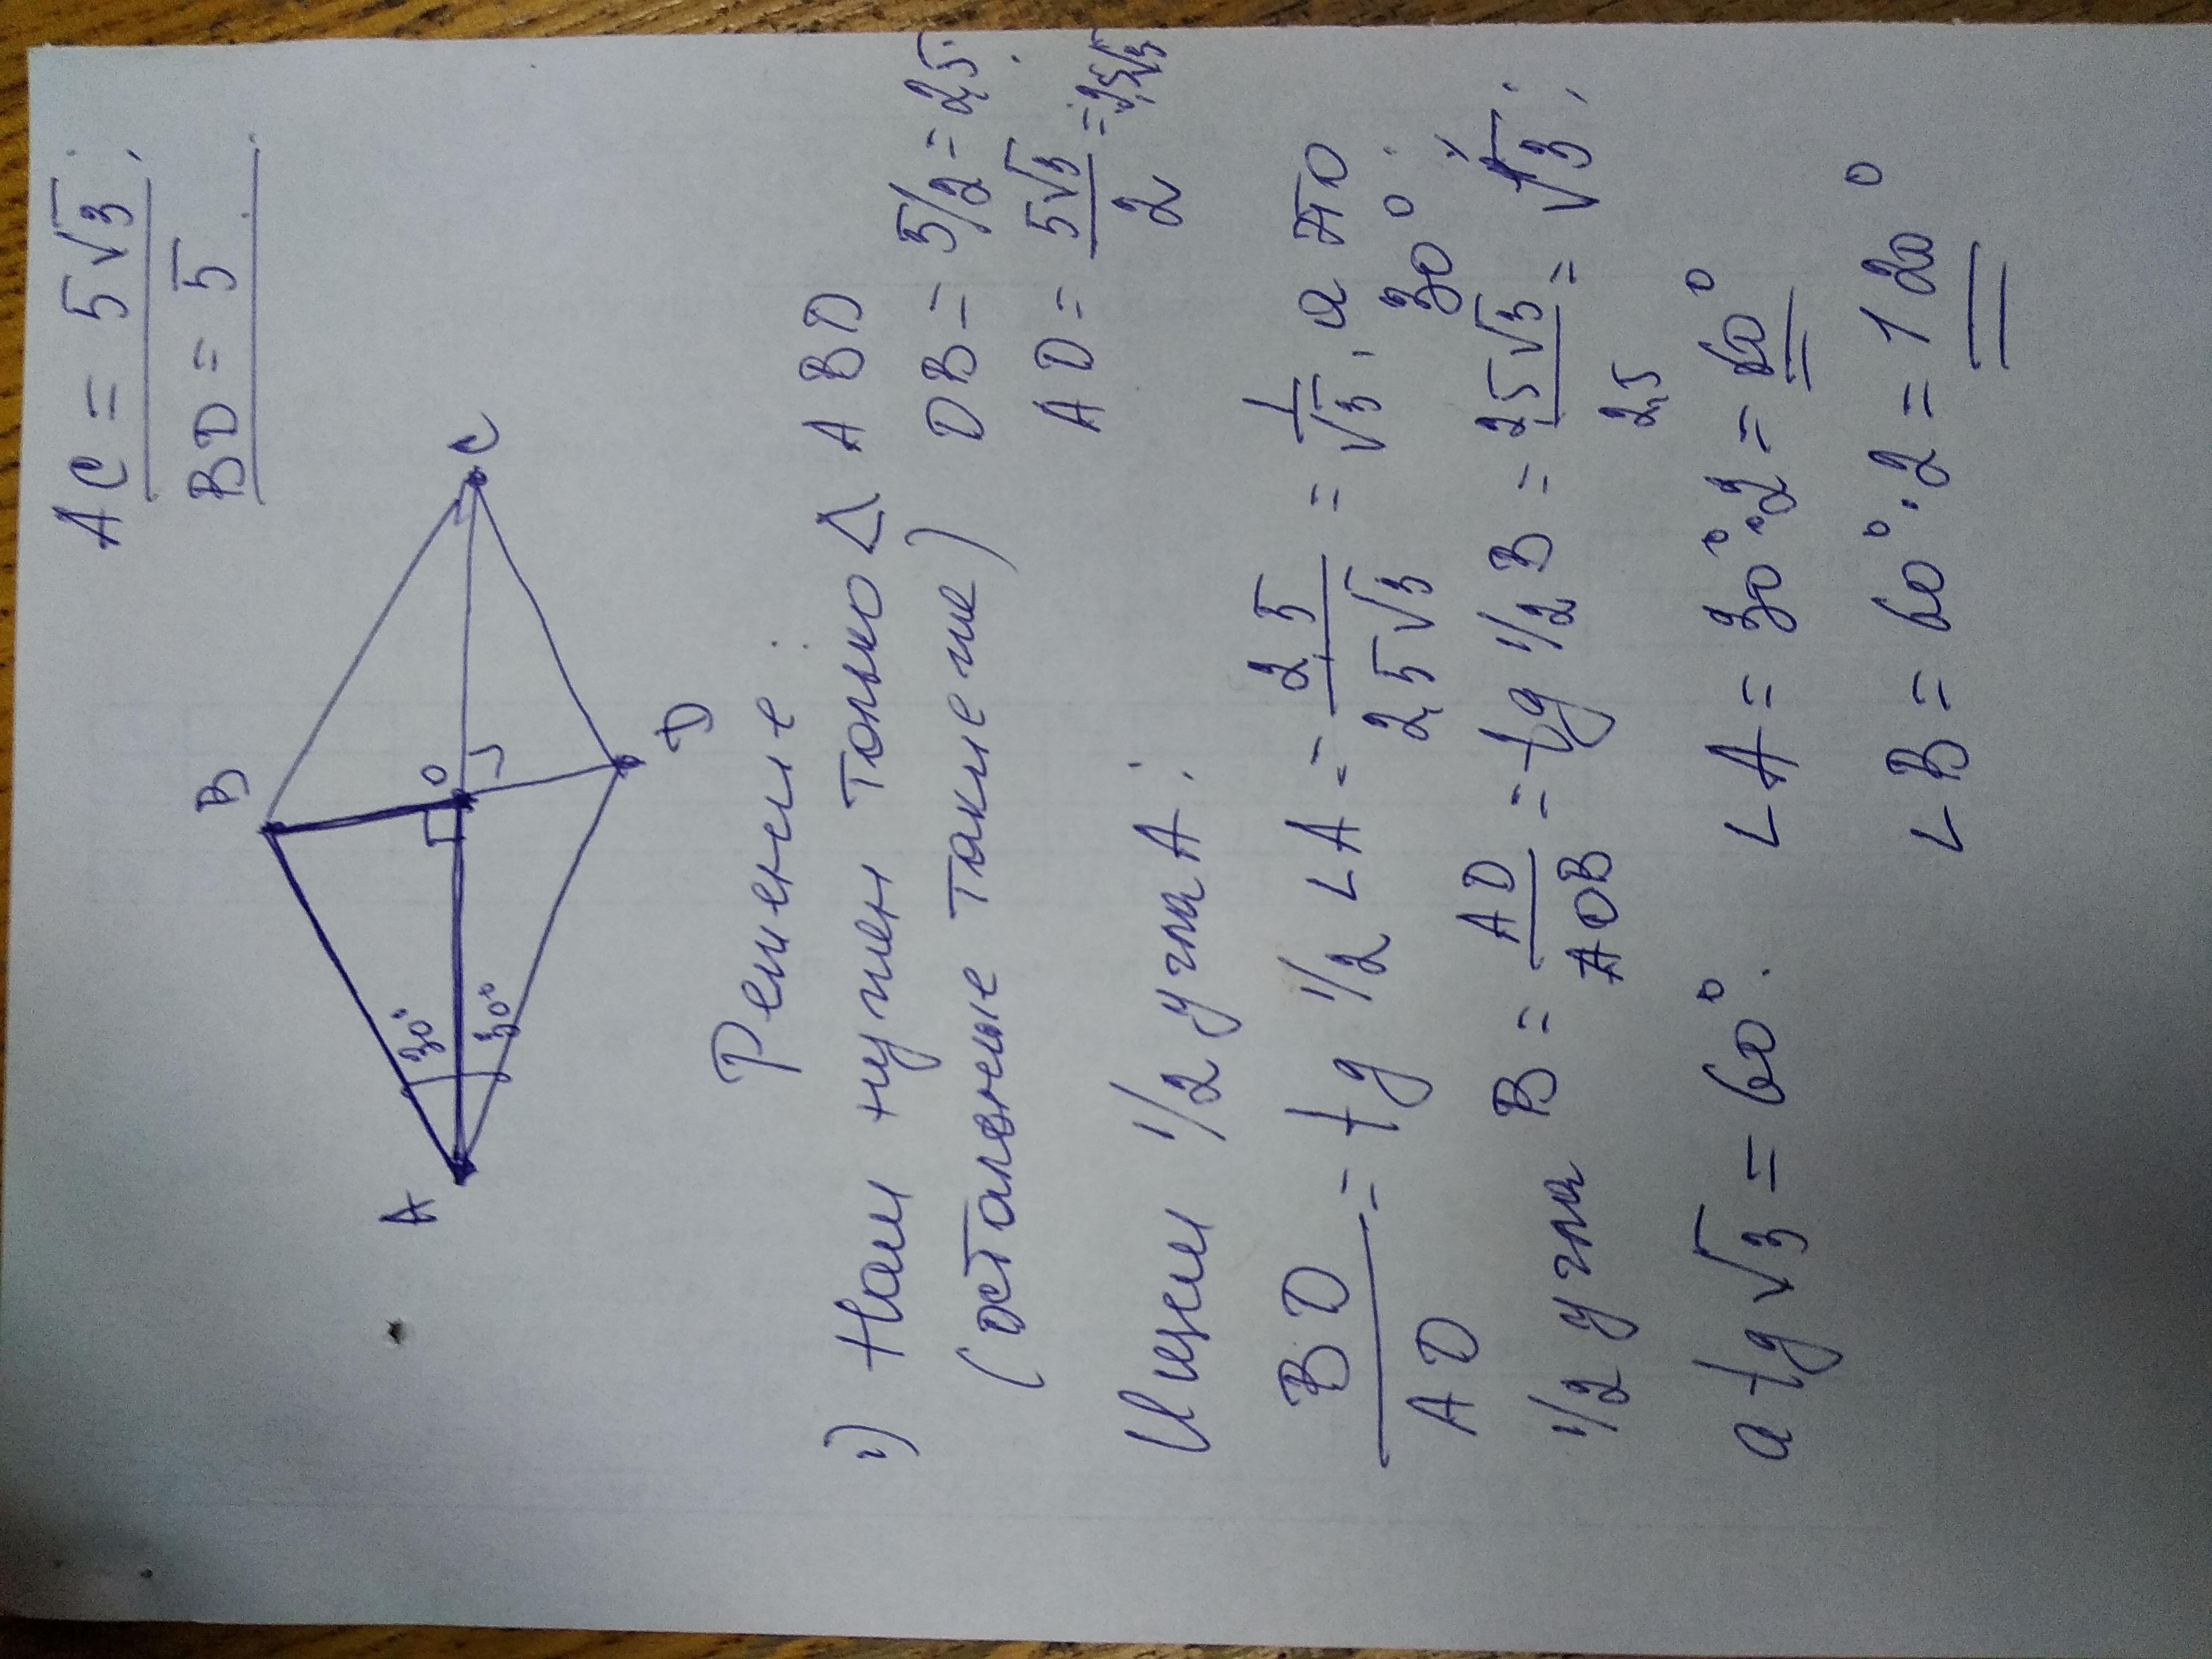 AC = 5√3;
BD = 5.
B
A
30°
30°
O
C
D
Решение:
1) Нам нужен только △ ABO
(остальные такие же) OB = 5/2 = 2,5.
AO = 5√3/2 = 2,5√3
Ищем 1/2 угла A:
BO/AO = tg 1/2 ∠A = 2,5/2,5√3 = 1/√3, а это 30°.
1/2 угла B = AO/OB = tg 1/2 B = 2,5√3/2,5 = √3;
а tg √3 = 60°. ∠A = 30°·2 = 60°
∠B = 60°·2 = 120°